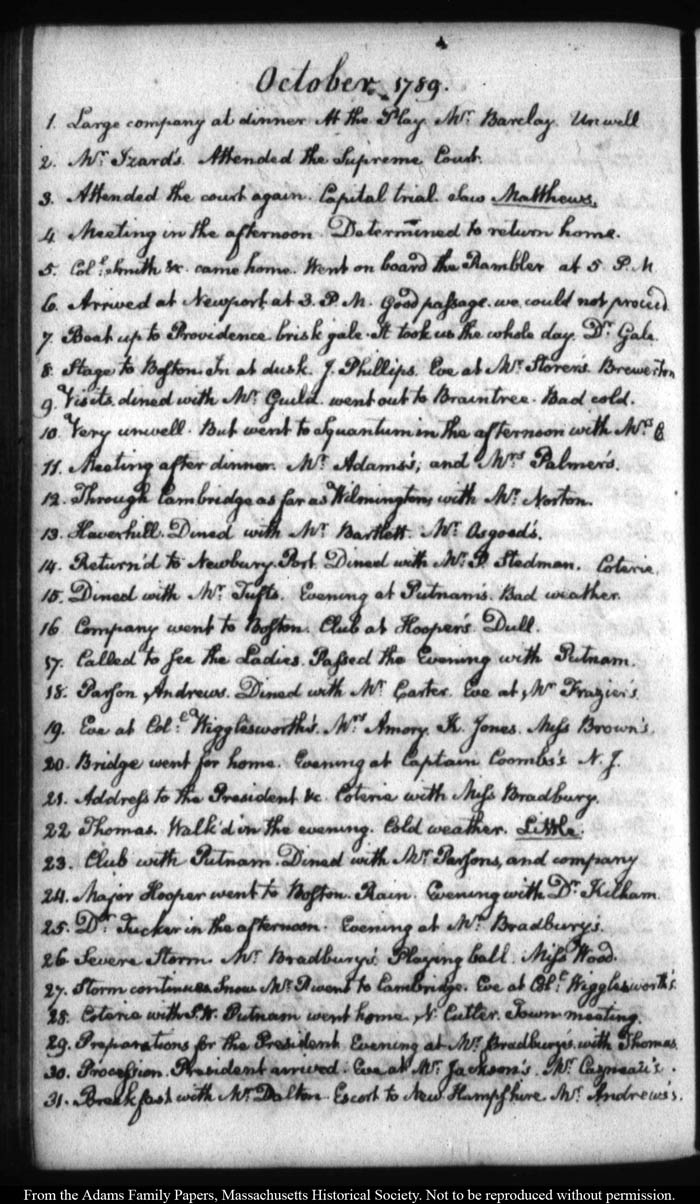 October. 1789.
1. Large company at dinner At the Play. Mr. Barclay. Unwell
2. Mr. Izard's. Attended the Supreme Court.
3. Attended the court again. Capital trial. Saw Matthews.
4. Meeting in the afternoon. Determined to return home.
5. Coll. Smith &c. came home. Went on board the Rambler at 5 P.M
6. Arrived at Newport at 3. P.M. Good passage. we could not proceed
7. Boat up to Providence brisk gale. It took us the whole day. Dr. Gale.
8. Stage to Boston. In at dusk. J. Phillips. Eve at Mr. Storer's. Brewerton
9. Visits. dined with Mr. Guild. went out to Braintree. Bad cold.
10. Very unwell. But went to Squantum in the afternoon with Mrs.
11. Meeting after dinner. Mr. Adams's, and Mrs. Palmer's.
12. Through Cambridge as far as Wilmington, with Mr. Norton.
13. Haverhill. Dined with Mr. Bartlett. Mr. Osgood's.
14. Return'd to Newbury-Port. Dined with Mr. Stedman. Coterie.
15. Dined with Mr. Tufts. Evening at Putnam's. Bad weather.
16 Company went to Boston. Club at Hooper's Dull.
17. Called to see the Ladies. Passed the Evening with Putnam.
18. Parson Andrews. Dined with Mr. Carter. Eve at, Mr Frazier's.
19. Eve at Coll. Wigglesworth's. Mrs. Amory. K. Jones. Miss Brown's.
20. Bridge went for home. Evening at Captain Coombs's N. J.
21. Address to the President &c. Coterie with Miss Bradbury.
22 Thomas. Walk'd in the evening. Cold weather. Little.
23. Club with Putnam. Dined with Mr. Parsons, and company
24. Major Hooper went to Boston. Rain. Evening with Dr. Kilham.
25. Dr. Tucker in the afternoon. Evening at Mr. Bradbury's.
26 Severe Storm. Mr. Bradbury's. Playing ball. Miss Wood.
27. Storm continues Snow Mr. went to Cambridge. Eve at Coll. Wigglesworth's.
28. Coterie with Putnam went home. N. Cutler. Town-meeting.
29. Preparations for the President. Evening at Mr. Bradbury's with Thomas.
30. Procession. President arrived. Eve at Mr. Jackson's. Mr.
31. Breakfast with Mr. Dalton. Escort to New Hampshire Mr. Andrews's.
From the Adams Family Papers, Massachusetts Historical Society. Not to be reproduced without permission.